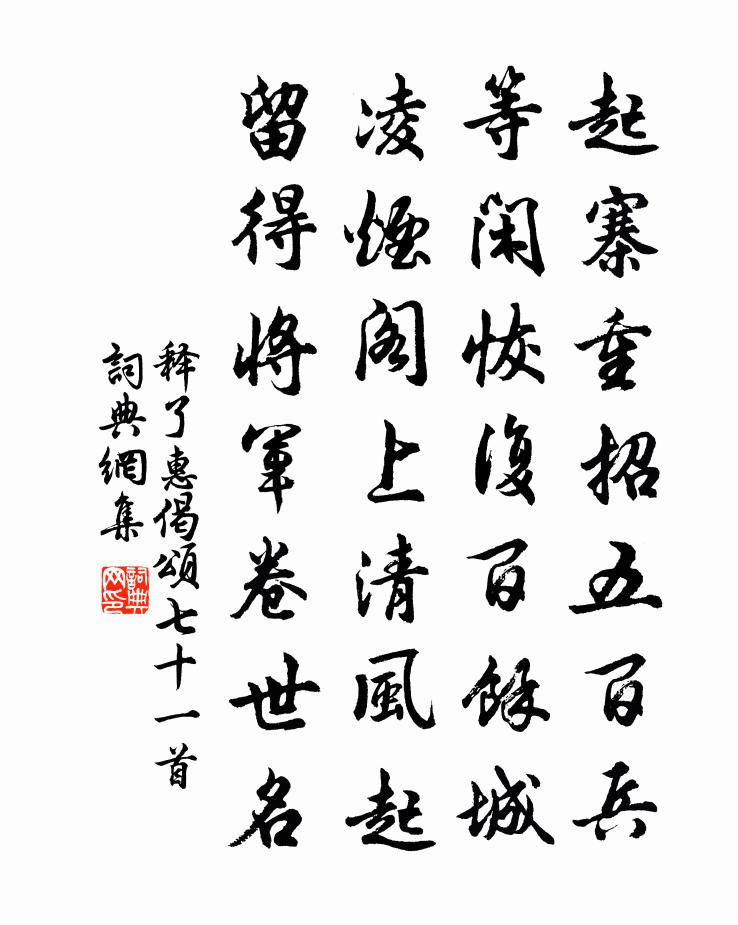 起寨重招五百兵
等閑恢復百餘城
凌煙閣上清風起
留得將軍卷世名
释了惠偈頌七十一首
詞典網集
詞典網印